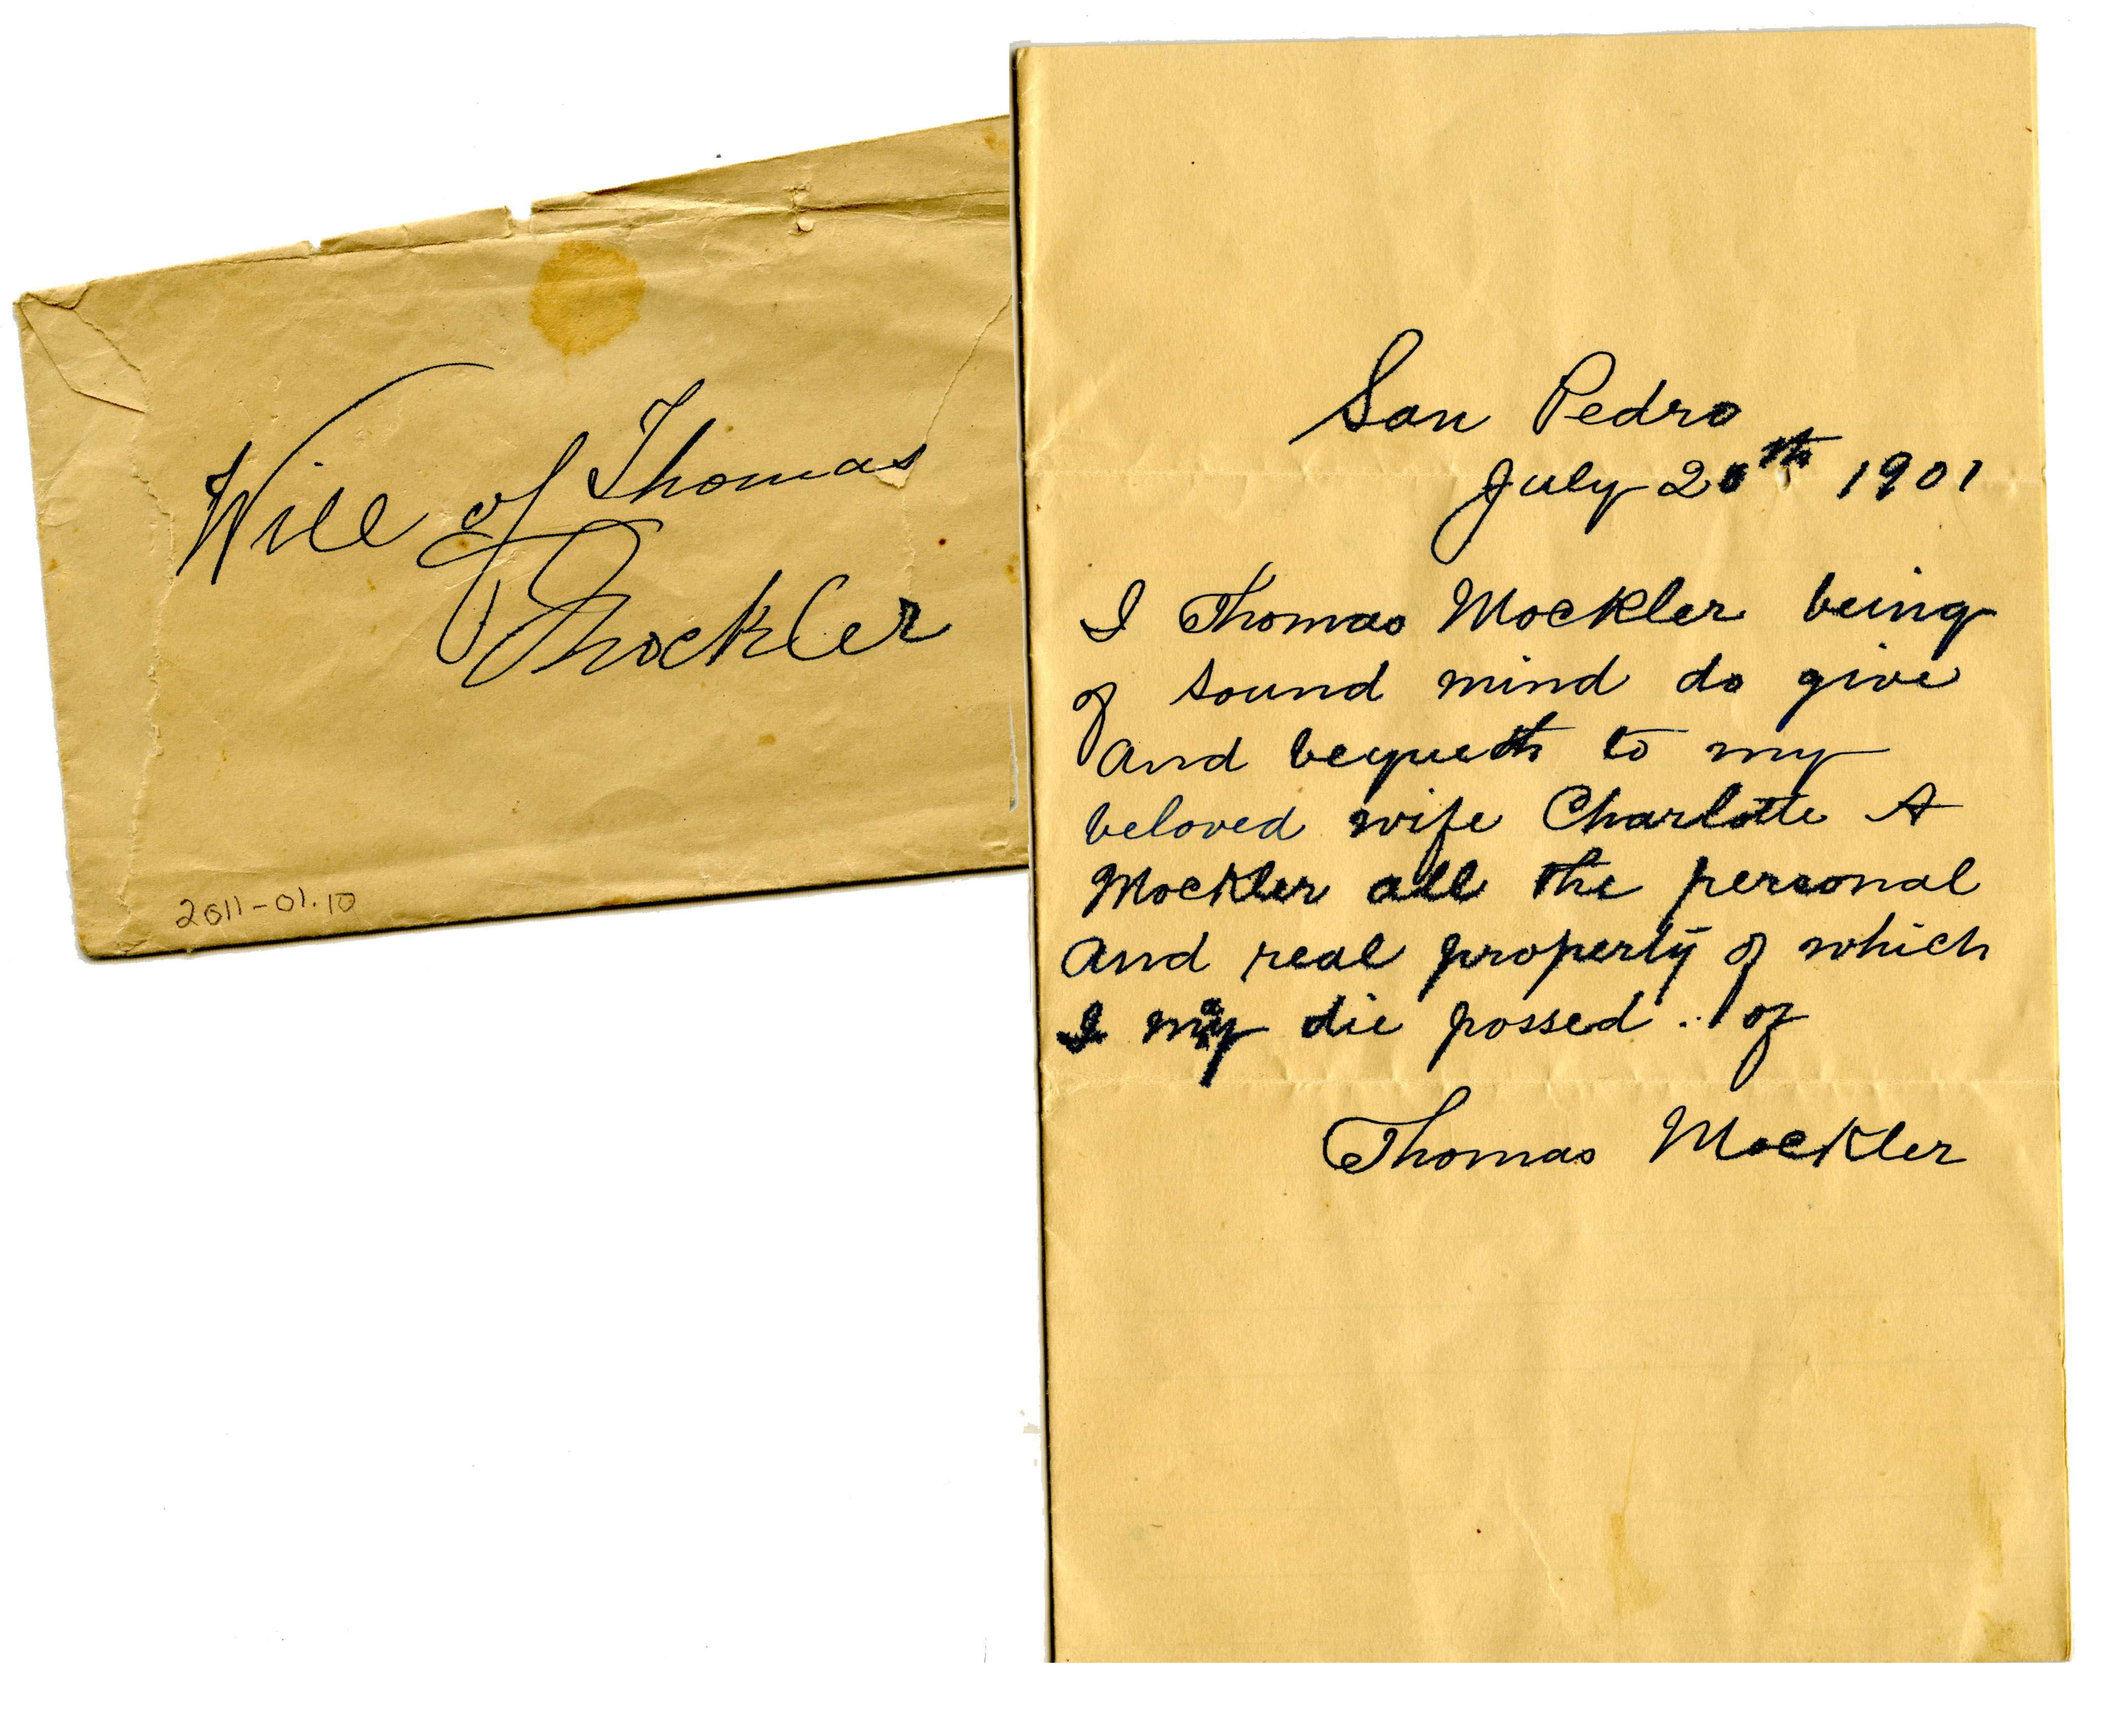 Will of Thomas
Mockler
2011-01.10
San Pedro
July 20th 1901
I Thomas Mockler being
of sound mind do give
and bequeth to my
beloved wife Charlotte A
Mockler all the personal
and real property of which
I may die possed . of
Thomas Mockler